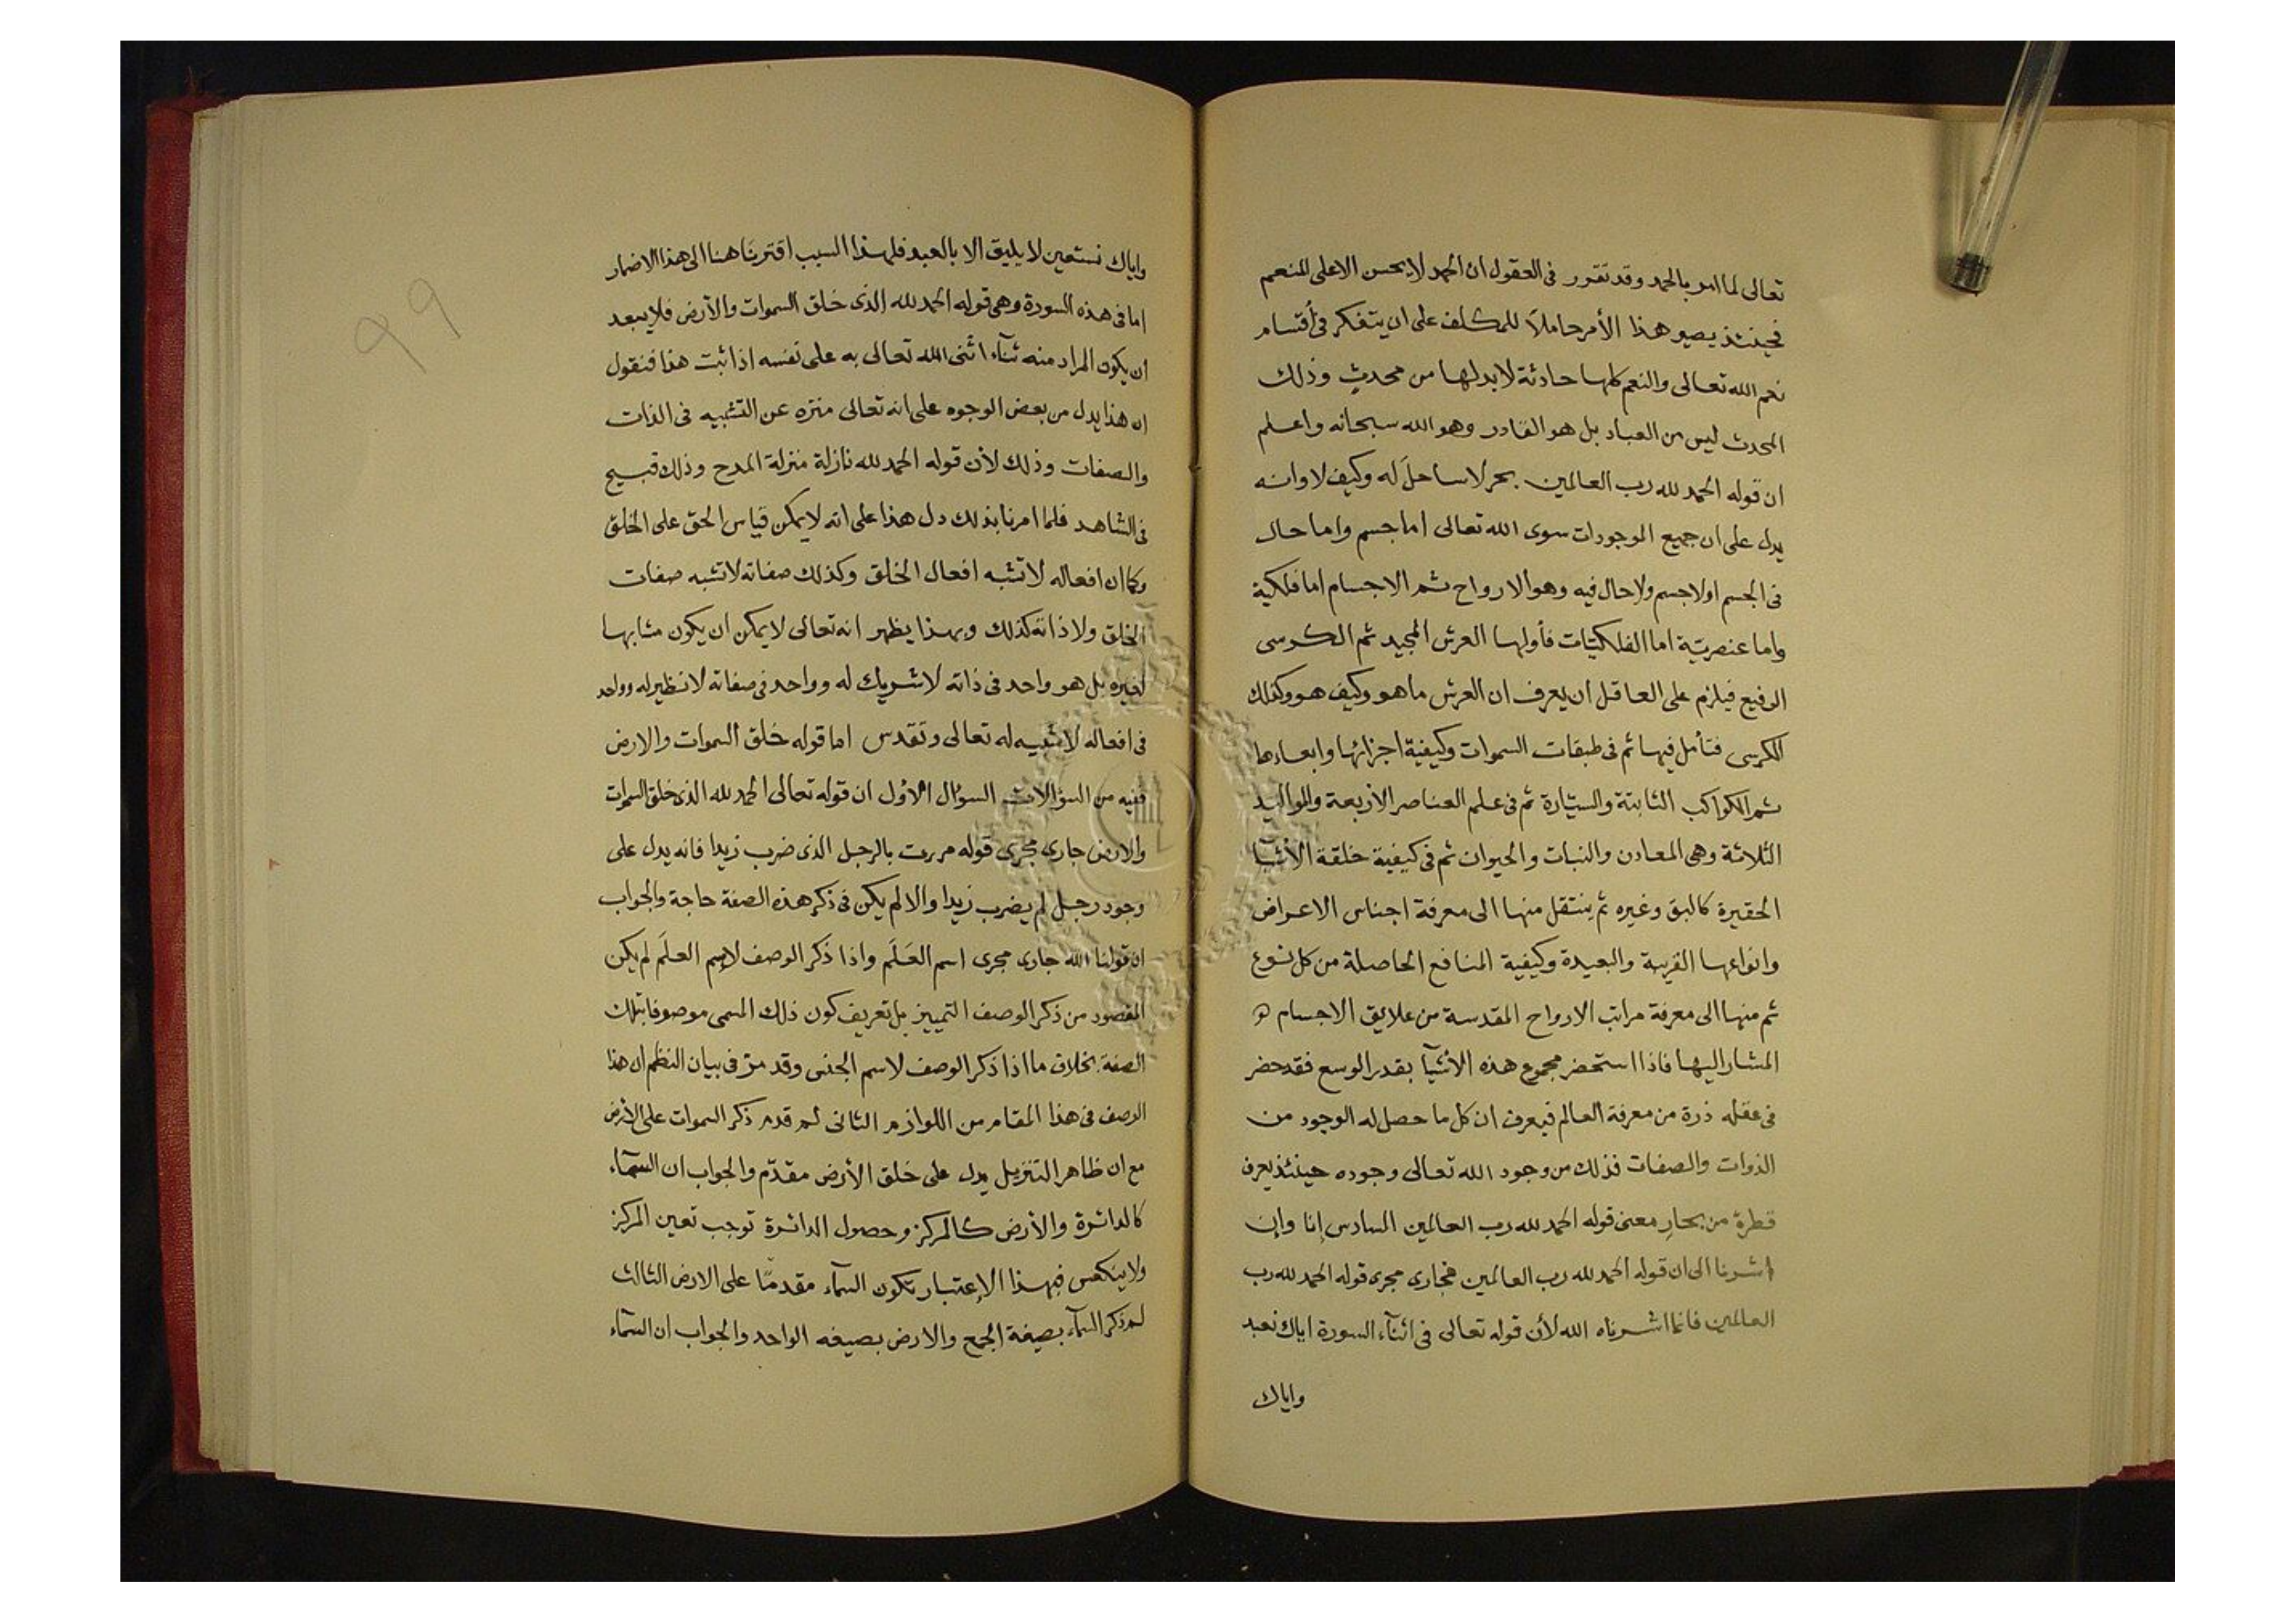 تعالى لما امر بالحمد وقد تقرر فى العقول ان الحمد لا يحسن الا على المنعم
فحينئذ يصير هذا الأمر حاملاً للمكلف على ان يتفكر فى أقسام
نعم الله تعالى والنعم كلها حادثة لابد لها من محدثٍ وذلك
المحدث ليس من العباد بل هو القادر وهو الله سبحانه واعلم
ان قوله الحمد لله رب العالمين بحر لا ساحلَ له وكيف لا وانه
يدل على ان جميع الموجودات سوى الله تعالى اما جسم واما حال
فى الجسم او لا جسم ولا حال فيه وهو الارواح ثم الاجسام اما فلكية
واما عنصريّة اما الفلكيّات فأولها العرش المجيد ثم الكرسى
الرفيع فيلزم على العاقل ان يعرف ان العرش ما هو وكيف هو وكذلك
الكرسى فتأمل فيها ثم فى طبقات السموات وكيفية اجزائها وابعادها
ثم الكواكب الثابتة والسيّارة ثم فى علم العناصر الأربعة والمواليد
الثلاثة وهى المعادن والنبات والحيوان ثم فى كيفية خلقة الأشيآ
الحقيرة كالبق وغيره ثم ينتقل منها الى معرفة اجناس الاعراض
وانواعها القريبة والبعيدة وكيفية المنافع الحاصلة من كل نوع
ثم منها الى معرفة مراتب الارواح المقدسة من علايق الاجسام
المشار اليها فاذا استحضر مجموع هذه الأشيآ بقدر الوسع فقد حضر
فى عقله ذرة من معرفة العالم فيعرف ان كل ما حصل له الوجود من
الذوات والصفات فذلك من وجود الله تعالى وجوده حينئذ يعرف
قطرة من بحارِ معنى قوله الحمد لله رب العالمين السادس إنا وإن
اشرنا الى ان قوله الحمد لله رب العالمين فجارى مجرى قوله الحمد لله رب
العالمين فانما اشرناه الله لأن قوله تعالى فى اثنآء السورة اياك نعبد
واياك
واياك نستعين لا يليق الا بالعبد فلهذا السبب اقترننا هنا الى هذا الاضمار
اما فى هذه السورة وهى قوله الحمد لله الذى خلق السموات والأرض فلا يبعد
ان يكون المراد منه ثنآء اثنى الله تعالى به على نفسه اذا ثبت هذا فنقول
ان هذا يدل من بعض الوجوه على انه تعالى منزه عن التشبيه فى الذات
والصفات وذلك لأن قوله الحمد لله نازلة منزلة المدح وذلك قبيح
فى الشاهد فلما امرنا بذلك دل هذا على انه لا يمكن قياس الحق على الخلق
وكما ان افعاله لا تشبه افعال الخلق وكذلك صفاته لا تشبه صفات
الخلق ولا ذاته كذلك وبهذا يظهر انه تعالى لا يمكن ان يكون مشابها
لغيره بل هو واحد فى ذاته لا شريك له وواحد فى صفاته لا نظير له وواحد
فى افعاله لا شبيه له تعالى وتقدس اما قوله خلق السموات والارض
ففيه من السؤالات السؤال الأول ان قوله تعالى الحمد لله الذى خلق السموات
والارض جارى مجرى قوله مررت بالرجل الذى ضرب زيدا فانه يدل على
وجود رجل لم يضرب زيدا والا لم يكن فى ذكر هذه الصفة حاجة والجواب
ان قولنا الله جارى مجرى اسم العَلَم واذا ذكر الوصف لاسم العلَم لم يكن
المقصود من ذكر الوصف التمييز بل تعريف كون ذلك المسمى موصوفا بتلك
الصفة بخلاف ما اذا ذكر الوصف لاسم الجنس وقد مرّ فى بيان النظم ان هذا
الوصف فى هذا المقام من اللوازم الثانى لم قدم ذكر السموات على الأرض
مع ان ظاهر التنزيل يدل على خلق الأرض مقدّم والجواب ان السمآء
كالدائرة والأرض كالمركز وحصول الدائرة توجب تعين المركز
ولا ينعكس فبهذا الإعتبار تكون السمآء مقدمًا على الارض الثالث
لم ذكر السمآء بصيغة الجمع والارض بصيغه الواحد والجواب ان السمآء
99